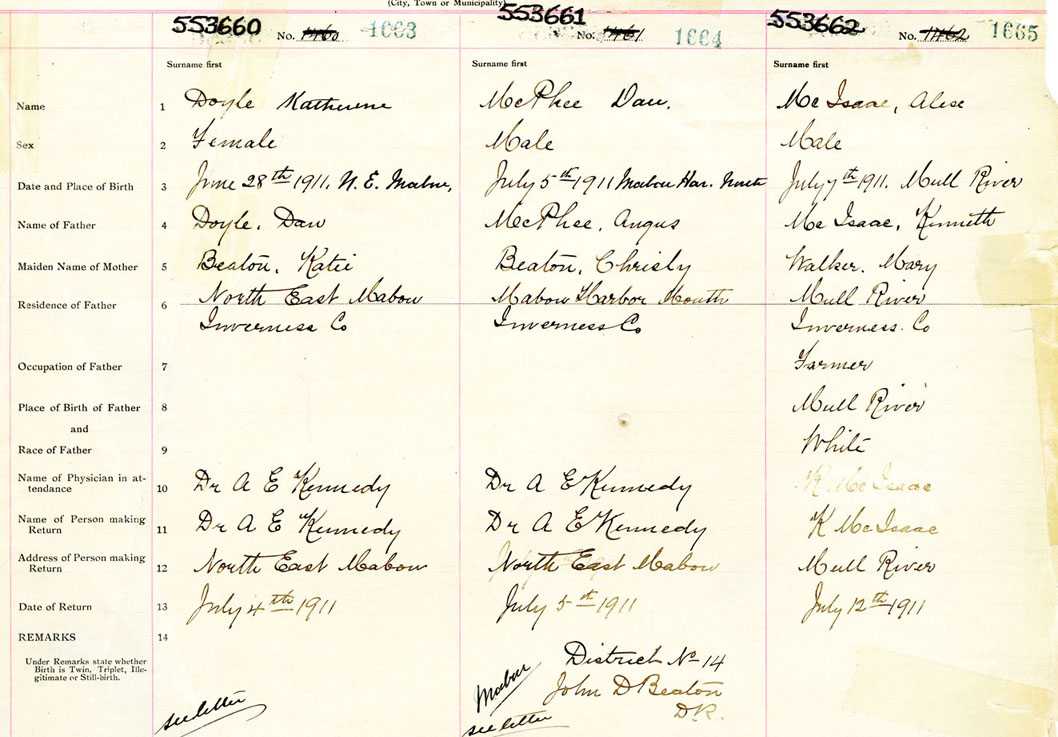 (City, Town or Municipality)
553660 No. 1663
553661 No. 1664
553662 No. 1665
Surname first Surname first Surname first
Name 1 Doyle Katherine McPhee Dan. McIsaac, Alex
Sex 2 Female Male Male
Date and Place of Birth 3 June 28th 1911. N. E. Mabou, July 5th 1911 Mabou Har. Mouth July 7th 1911. Mull River
Name of Father 4 Doyle, Dan McPhee, Angus McIsaac, Kenneth
Maiden Name of Mother 5 Beaton, Katie Beaton, Christy Walker, Mary
Residence of Father 6 North East Mabou Mabou Harbor Mouth Mull River
Inverness Co Inverness Co Inverness. Co
Occupation of Father 7 Farmer
Place of Birth of Father 8 Mull River
and
Race of Father 9 White
Name of Physician in at-
tendance 10 Dr A E Kennedy Dr A E Kennedy K McIsaac
Name of Person making
Return 11 Dr A E Kennedy Dr A E Kennedy K McIsaac
Address of Person making
Return 12 North East Mabou North East Mabou Mull River
Date of Return 13 July 4th 1911 July 5th 1911 July 12th 1911
REMARKS 14
Under Remarks state whether
Birth is Twin, Triplet, Ille-
gitimate or Still-birth.
District No 14
Mabou John D Beaton
D.R.
see letter see letter